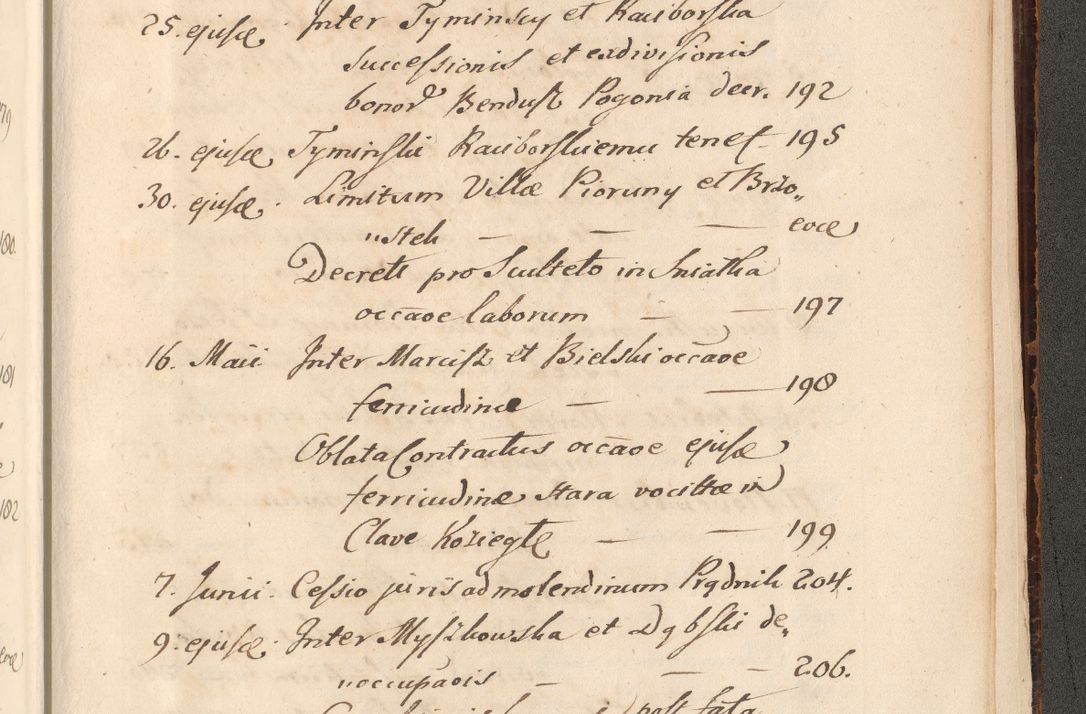 25. ejusdæ. Inter Tyminscy et Raciborska
successionis et exdivisionis
bonorū Bendusz Pogonia decr. 192
26. ejusdæ. Tyminski Raciborskiemu tenet 195
30. ejusdæ. Limitum Villæ Pioruny et Brzo„
„stek — — — eoæ
Decretū pro Sculteto in Sniatka
occāoe laborum — — 197
16. Maii Inter Marcisz et Bielski occāoe
ferricudinæ — — 198
Oblata Contractus occāoe ejusdæ
ferricudinæ Stara vocitatæ in
Clave Koziegłē — — 199
7. Junii. Cessio juris ad molendinum Prądnik 204.
9. ejusdæ. Inter Myszkowska et Dąbski de„
„occupāois — — — 206.
post fata
79
100.
101
102